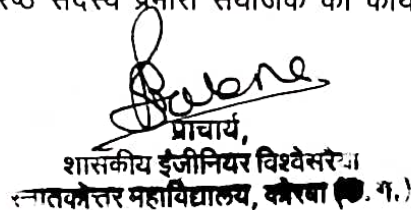 सदस्य प्रभारी संयोजक का कार्य
प्राचार्य,
शासकीय इंजीनियर विश्वेसरैया
स्नातकोत्तर महाविद्यालय, कोरबा (छ. ग.)